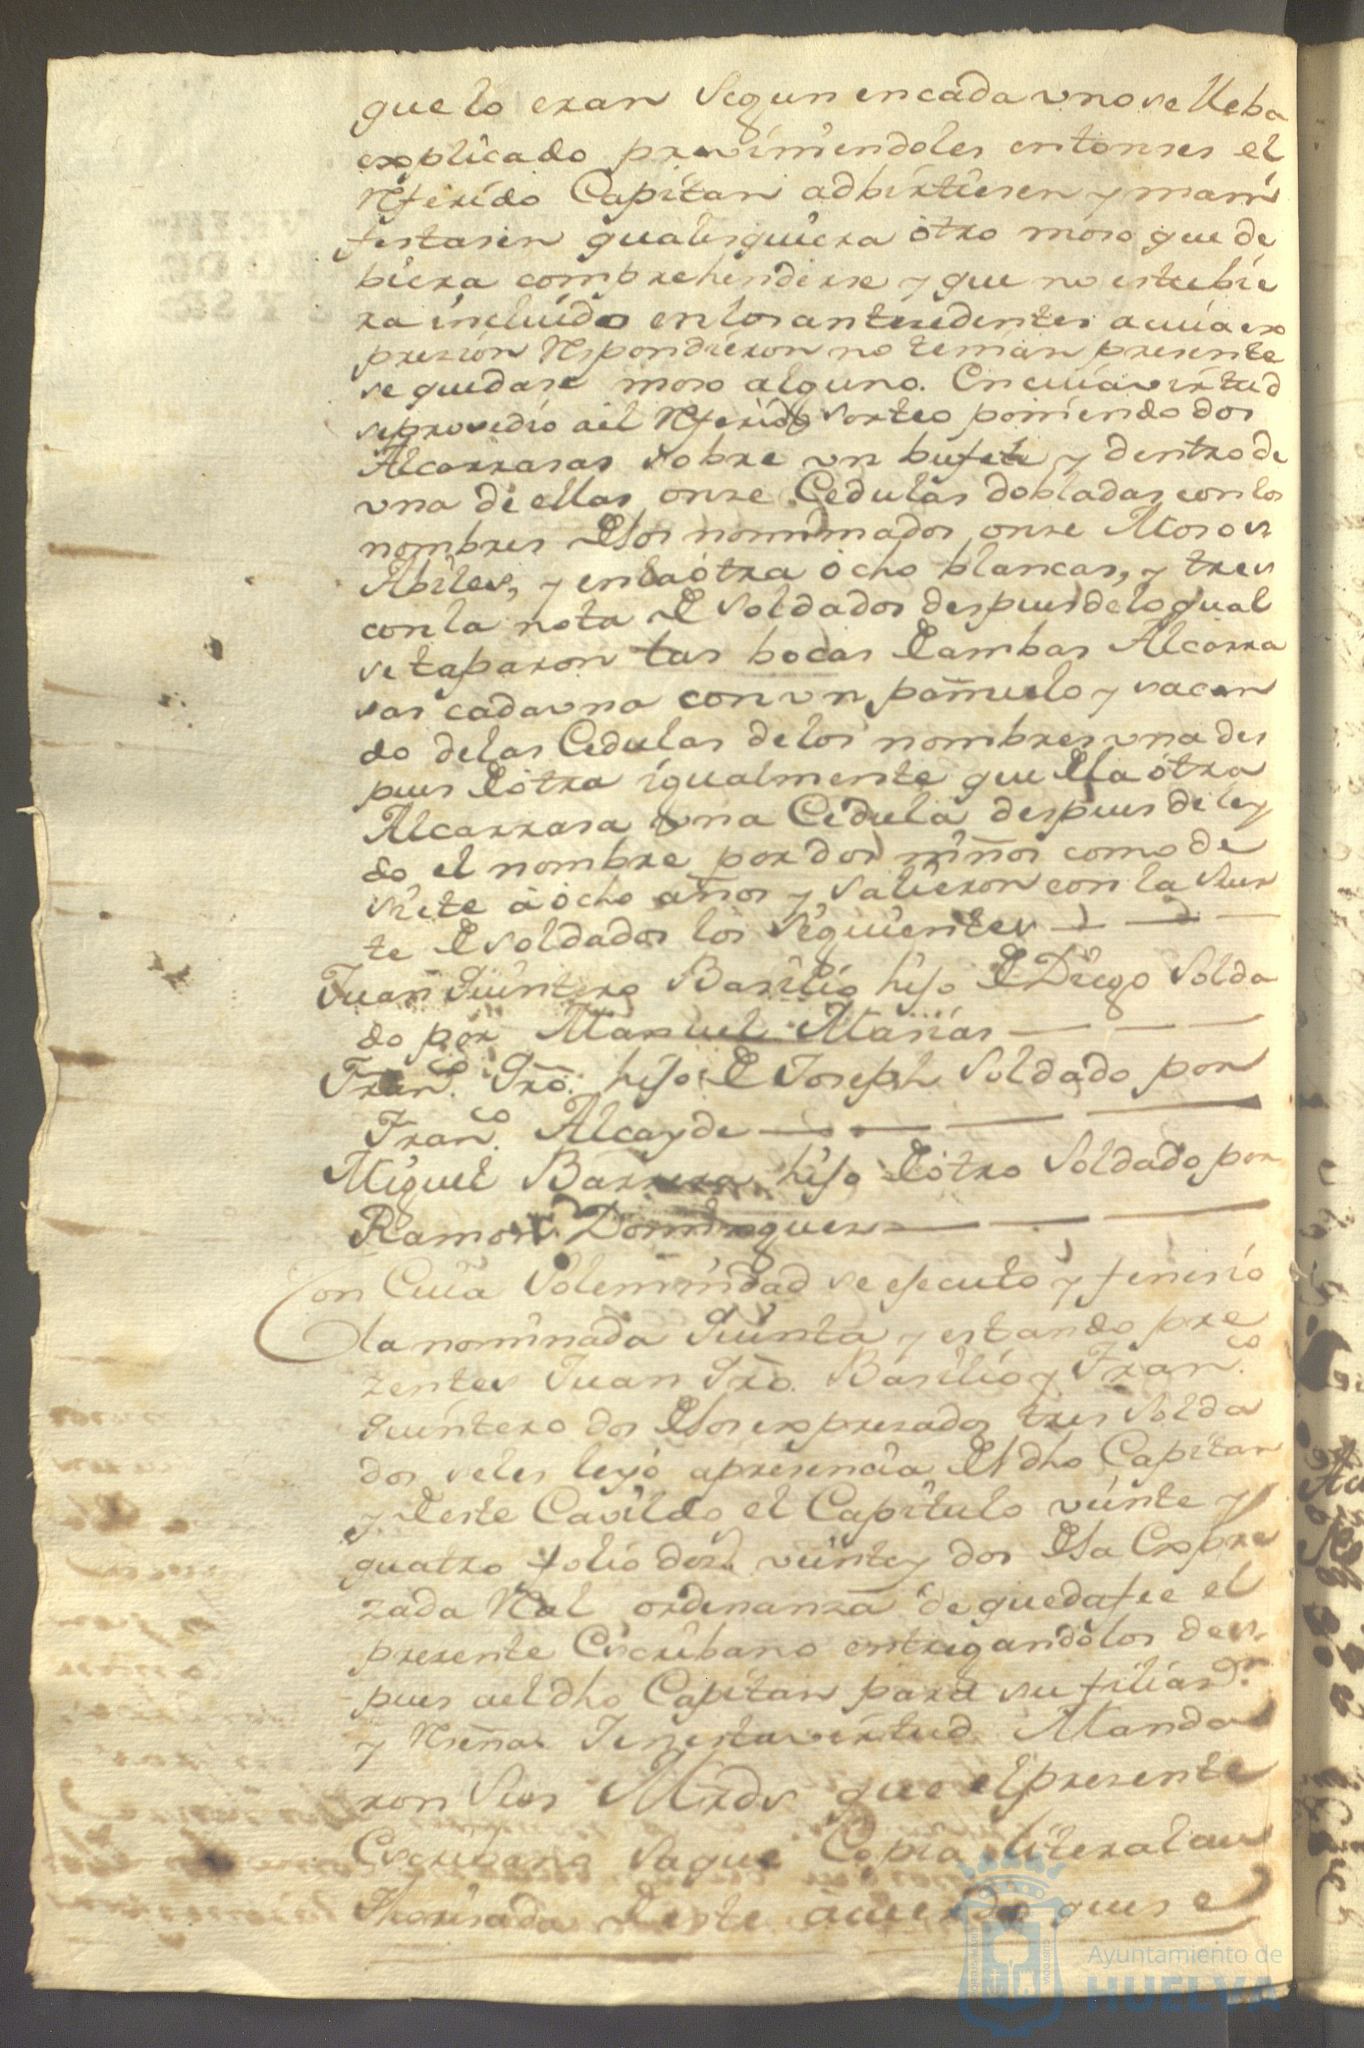 que lo eran segun en cada vno se lleba
explicado previniendoles entonses el
referido Capitan adbirtiesen y mani
festasen qualesquiera otro moso que de
biera comprehenderse y que no estubie
ra incluido en los antesedentes a cuia ex
presion respondieron no tenian presente
se quedase moso alguno. En cuia virtud
se prosedio a el referido sorteo poniendo dos
Alcarrasas sobre vn bufete y dentro de
vna de ellas onse Cedulas dobladas con los
nombres de los nominados onse Mosos
Abiles, y en la otra ocho blancas, y tres
con la nota de Soldados despues de lo qual
se taparon las bocas de ambas Alcarra
sas cada vna con vn pañuelo y sacan
do de las Cedulas de los nombres vna des
pues de otra igualmente que de la otra
Alcarrasa vna Cedula despues de ley
do el nombre por dos niños como de
siete a ocho años y salieron con la suer
te de soldados los siguientes
Juan Quintero Basilio hijo de Diego Solda
do por Manuel Masias
Fran.co Qro. hijo de Joseph Soldado por
Fran.co Alcayde
Miguel Barrera hijo de otro Soldado por
Ramon Dominguez
Con Cuia Solemnidad se ejecuto y fenesio
la nominada Quinta y estando pre
zentes Juan Qro. Basilio y Fran.co
Quintero dos de los expresados tres Solda
dos se les leyó a presencia del dho Capitan
y de este Cavildo el Capitulo veinte y
quatro folio dos. veinte y dos de la Expre
zada Real ordenanza de que da fee el
presente Escribano entregandolos des
pues a el dho Capitan para su filias.on
y Reseña. Y en esta virtud Manda
ron Sus Mrds que el presente
Escribano saque Copia literal au
thorisada de este acuerdo que se
Ayuntamiento de
HUELVA